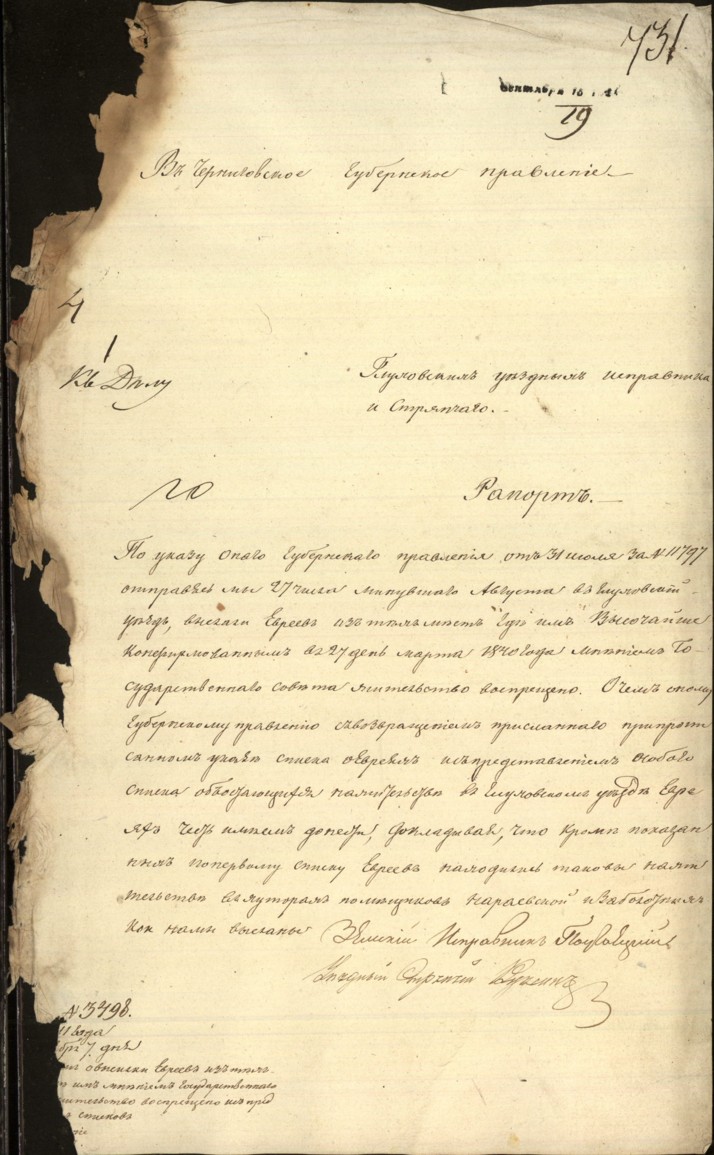 731
сентября 10
19
Въ Черниговское Губернское правленіе.
4
1
Къ Дѣлу
Глуховскимъ уѣзднымъ исправника
и Стряпчаго.
Рапортъ.
По указу онаго Губернскаго правленія отъ 31 июля за № 11797
отправясь мы 27 числа минувшаго Августа въ Глуховскій
уѣздъ, выслали Евреевъ изъ тѣхъ мѣстъ Гдѣ имъ Высочайше
Конфирмованнымъ въ 27 день марта 1840 года мнѣніемъ Го-
сударственнаго совѣта жительство воспрещено. О чемъ оному
Губернскому правленію съ возвращеніемъ присланнаго при пропи
санномъ указѣ списка о Евреяхъ и съ представленіемъ особого
списка об жительствѣ въ Глуховскомъ уѣздѣ Евре
яхъ честь имѣемъ донести, докладывая, что кромѣ показан
ныхъ по первому списку Евреевъ находились таковы на жи
тельствѣ въ хуторахъ помѣщиковъ
кои нами высланы Земскій Исправникъ
Уѣздный Стряпчій
№ 3498.
года
7. дня
Евреевъ изъ тѣхъ
имъ мнѣніемъ Государственнаго
жительство воспрещено и съ пред
списковъ